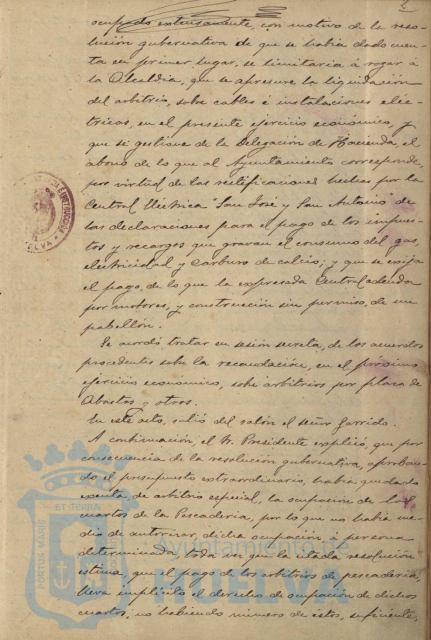 ocupado extensamente, con motivo de la reso-
lución gubernativa de que se había dado cuen-
ta en primer lugar, se limitaría á rogar á
la Alcaldía, que se apresure la liquidación
del arbitrio, sobre cables é instalaciones eléc-
tricas, en el presente ejercicio económico, y
que se gestione de la Delegación de Hacienda, el
abono de lo que al Ayuntamiento corresponde,
por virtud de las rectificaciones hechas por la
Central Eléctrica San José y San Antonio de
las declaraciones para el pago de los impues-
tos y recargos que gravan el consumo del gas,
electricidad y carburo de calcio; y que se exija
el pago, de lo que la expresada Central adeuda
por motores, y construcción sin permiso, de un
pabellón.
Se acordó tratar en sesión secreta, de los acuerdos
procedentes sobre la recaudación, en el próximo
ejercicio económico, sobre arbitrios por plaza de
Abastos y otros.
En este acto, salió del salón el señor Garrido.
A continuación, el Sr. Presidente explicó, que por
consecuencia de la resolución gubernativa, aproban-
do el presupuesto extraordinario, había quedado
exenta de arbitrio especial, la ocupación de los
cuartos de la Pescadería, por lo que no había me-
dio de autorizar, dicha ocupación á persona
determinada, toda vez que la citada resolución
estima, que el pago de los arbitrios de pescadería,
lleva implícito el derecho de ocupación de dichos
cuartos, no habiendo número de estos, suficiente,
PORTUS MARIS
ET TERRAE
Ayuntamiento de
HUELVA